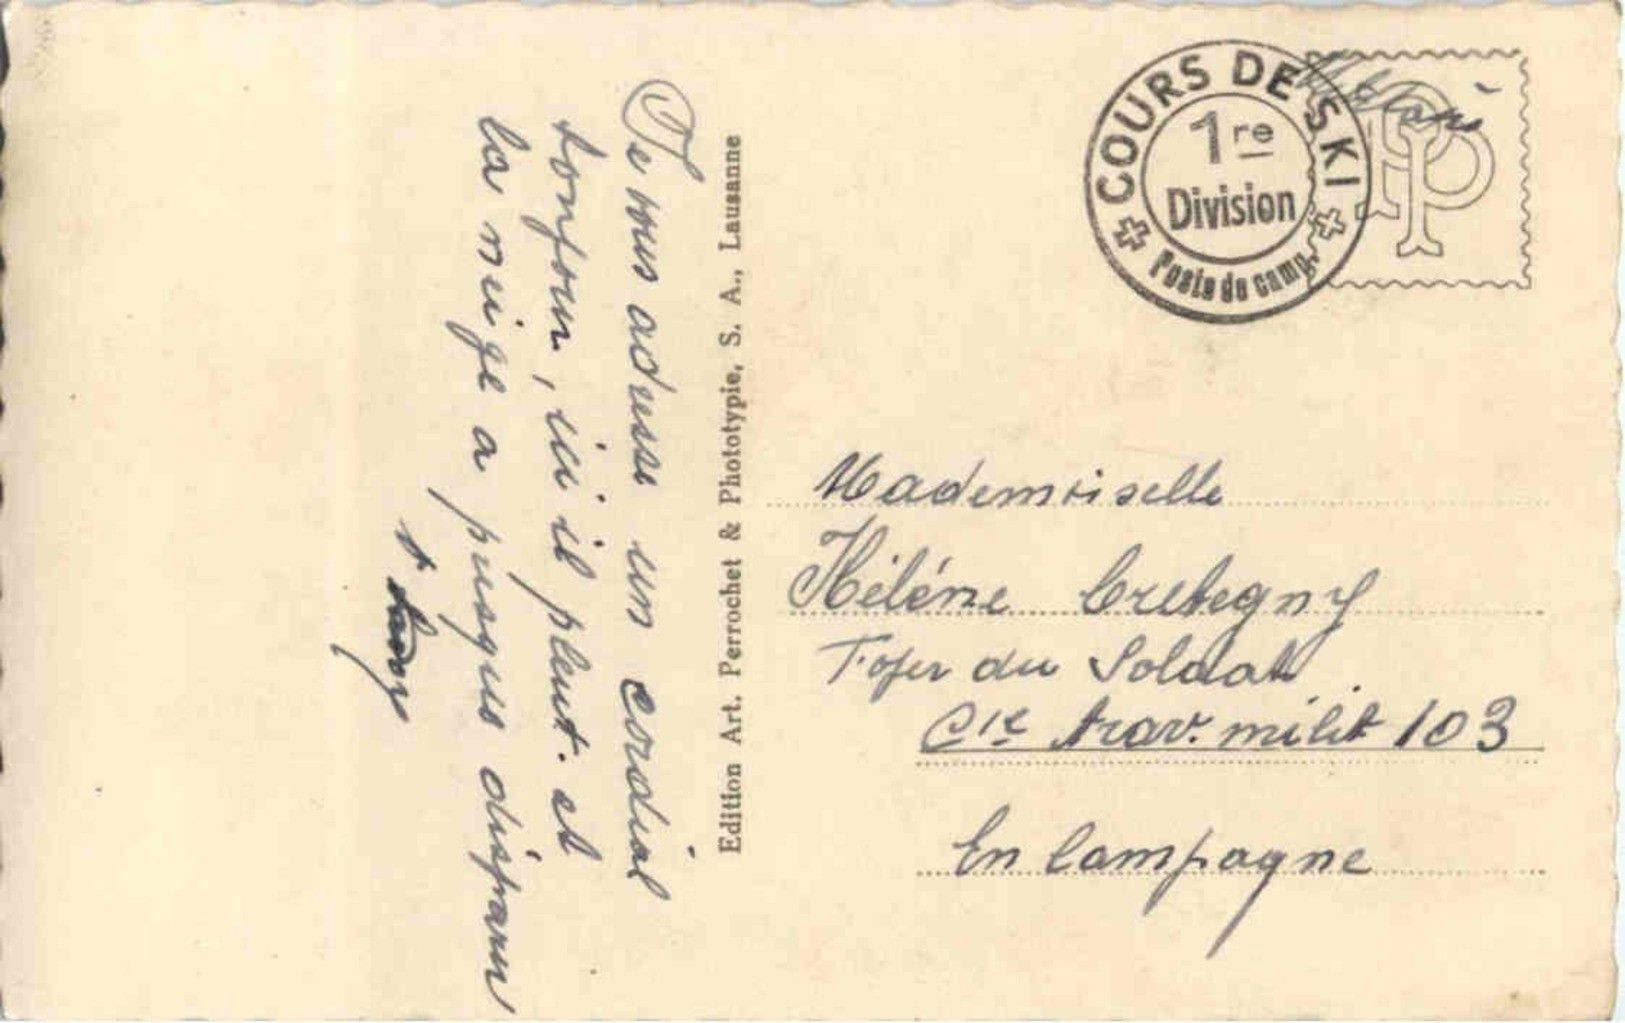 Je vous adresse un cordial
bonjour, ici il pleut. et
la neige a presque disparu
Edition Art. Perrochet & Phototypie, S. A., Lausanne
COURS DE SKI
1re
Division
Poste de camp.
P
Mademoiselle
Hélène Cretegny
Foyer du Soldat
Cie trav. milit 103
En Campagne